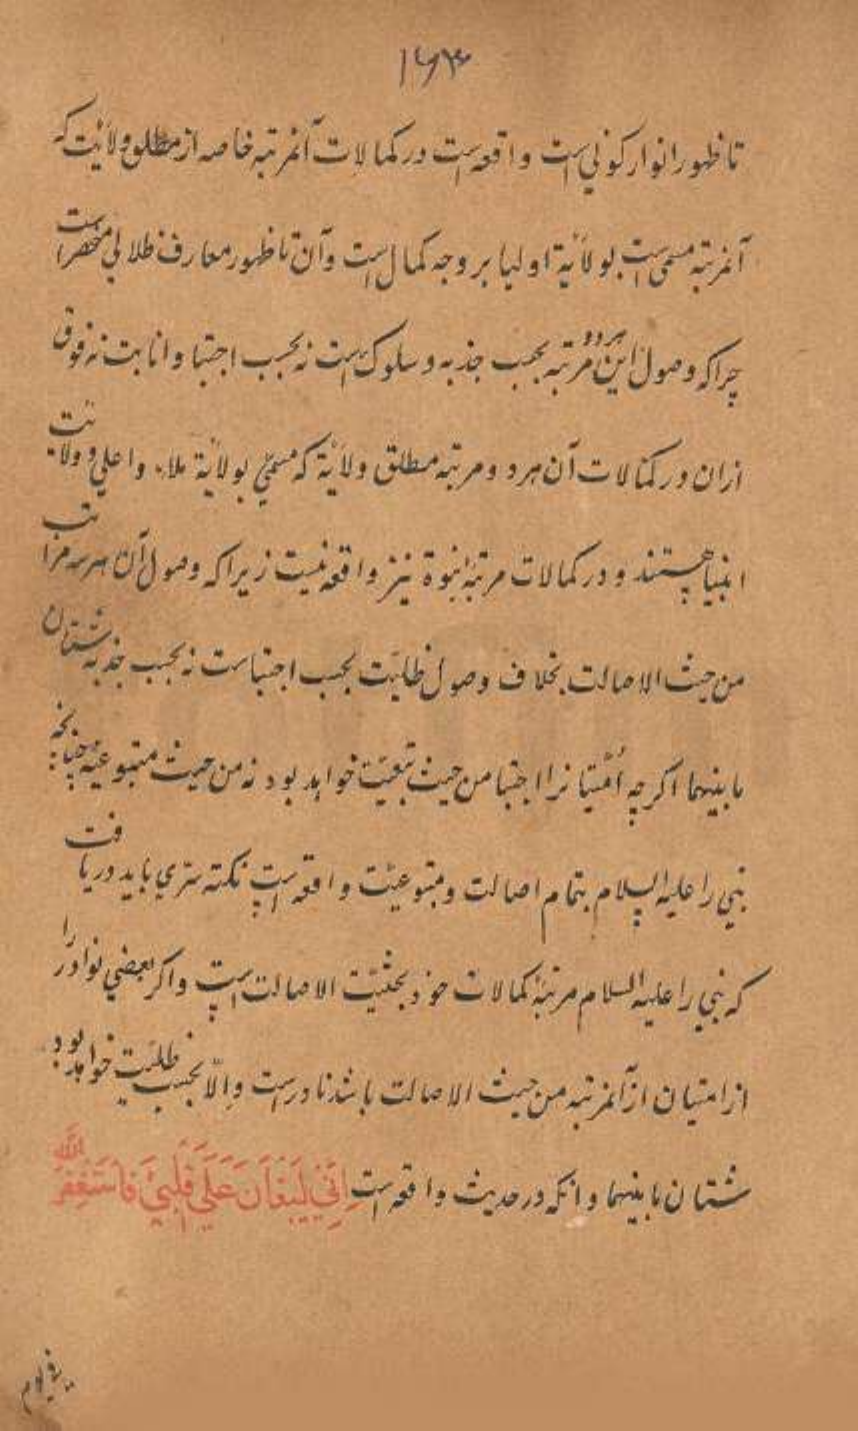 ۱۶۳
تا ظهور انوار کونی است و اقعه است در کمالات آنمرتبه خاصه از مطلق ولائیت که
آنمرتبه مسمی است بولأیة اولیا بر وجه کمال است وآن تا ظهور معارف ظلالی منحصر است
چراکه وصول این هردو مرتبه بحسب جذبه و سلوک است نه بحسب اجتبا وانابت نه فوق
ازان در کمالات آن هردو مرتبه مطلق ولایة که مسمی بولأیة ملاء واعلی و ولایت
انبیا هستند و در کمالات مرتبهٔ نبوة نیز واقعه نیست زیراکه وصول آن هر سه مراتب
من حیث الاصالت بخلاف وصول ظلیّت بحسب اجتباست نه بحسب جذبه شتان
ما بینهما اکرچه اُمّتیانرا اجتبا من حیث تبعیّت خواهد بود نه من حیث متبوعیّة چنانچه
نبی را علیه السلام بتمام اصالت ومتبوعیّت واقعه است نکته سرّی باید دریافت
که نبی را علیه السلام مرتبهٔ کمالات خود بحثیّت الاصالت است واکر بعضی نوادر را
از امتیان از آنمرتبه من حیث الاصالت باشد نادر است والّا بحسب ظلیّت خواهد بود
شتان ما بینهما وانکه در حدیث واقعه است اِنّی لَیُغَانَ عَلَی قَلبِیَ فَاَستَغفِرُ الله
فی یوم